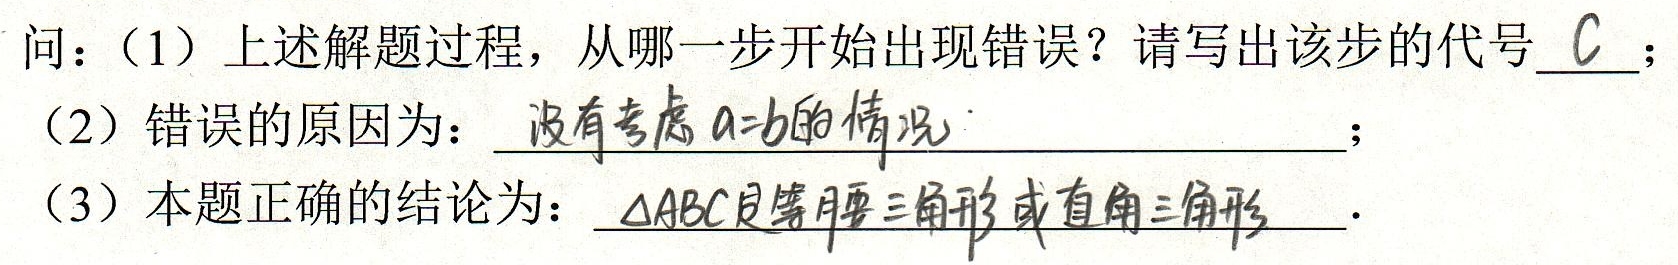 问：（1）上述解题过程，从哪一步开始出现错误？请写出该步的代号 C ；
（2）错误的原因为： 没有考虑 a=b的情况 ；
（3）本题正确的结论为： △ABC是等腰三角形或直角三角形 .